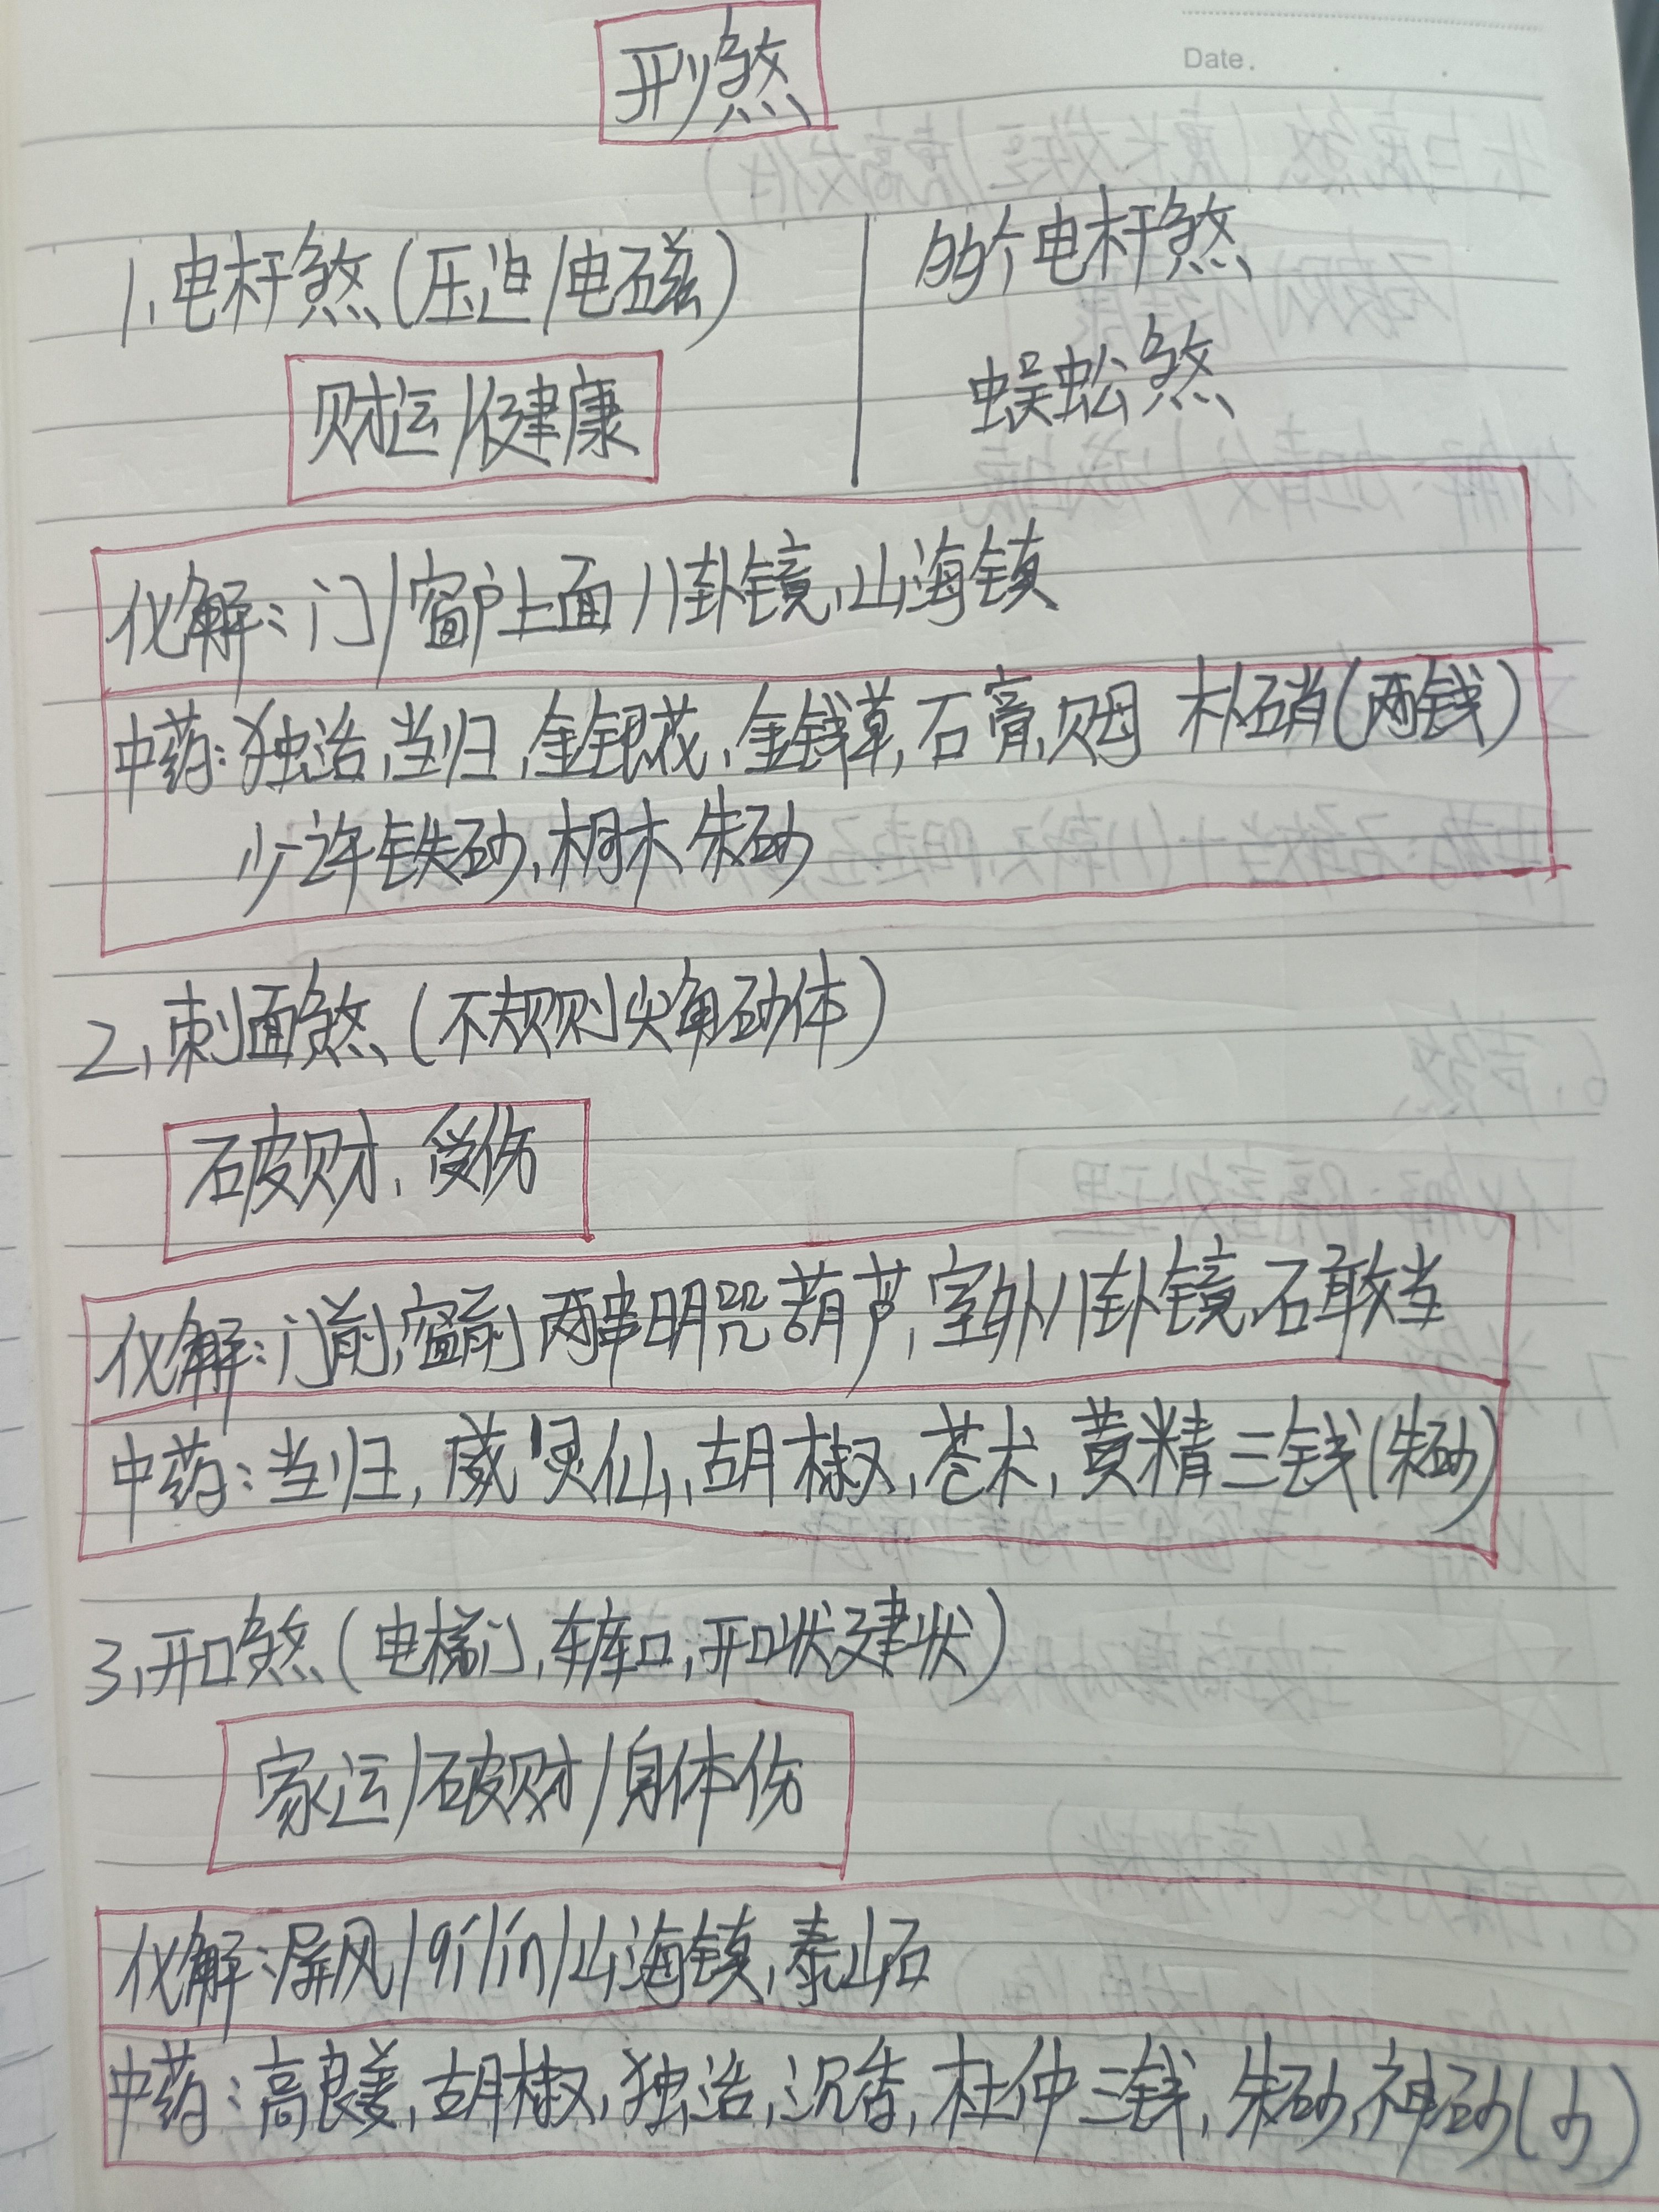 形煞
Date.
1.电杆煞(压迫/电磁)
多个电杆煞
蜈蚣煞
财运/健康
化解:门/窗户上面八卦镜,山海镇
中药:独活,当归,金银花,金钱草,石膏,贝母 朴硝(两钱)
少许铁砂,桐木朱砂
2,刺面煞(不规则尖角砂体)
破财,受伤
化解:门前,窗前两串明咒葫芦,室外八卦镜,石敢当
中药:当归,威灵仙,胡椒,苍术,黄精三钱(朱砂)
3,开口煞(电梯门,车库口,开口状建状)
家运/破财/身体伤
化解:屏风/qilin/山海镇,泰山石
中药:高良姜,胡椒,独活,沉香,杜仲三钱,朱砂,神砂(少)